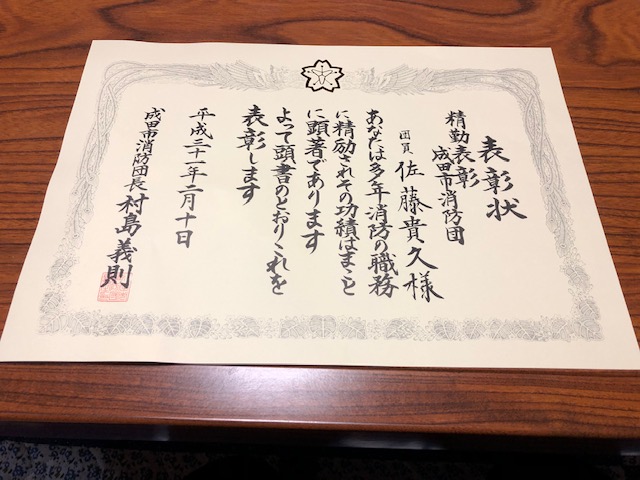 表彰状
精勤表彰
成田市消防団
団員 佐藤貴久様
あなたは多年消防の職務
に精励されその功績はまこと
に顕著であります
よって頭書のとおりこれを
表彰します
平成三十一年二月十日
成田市消防団長 村島義則